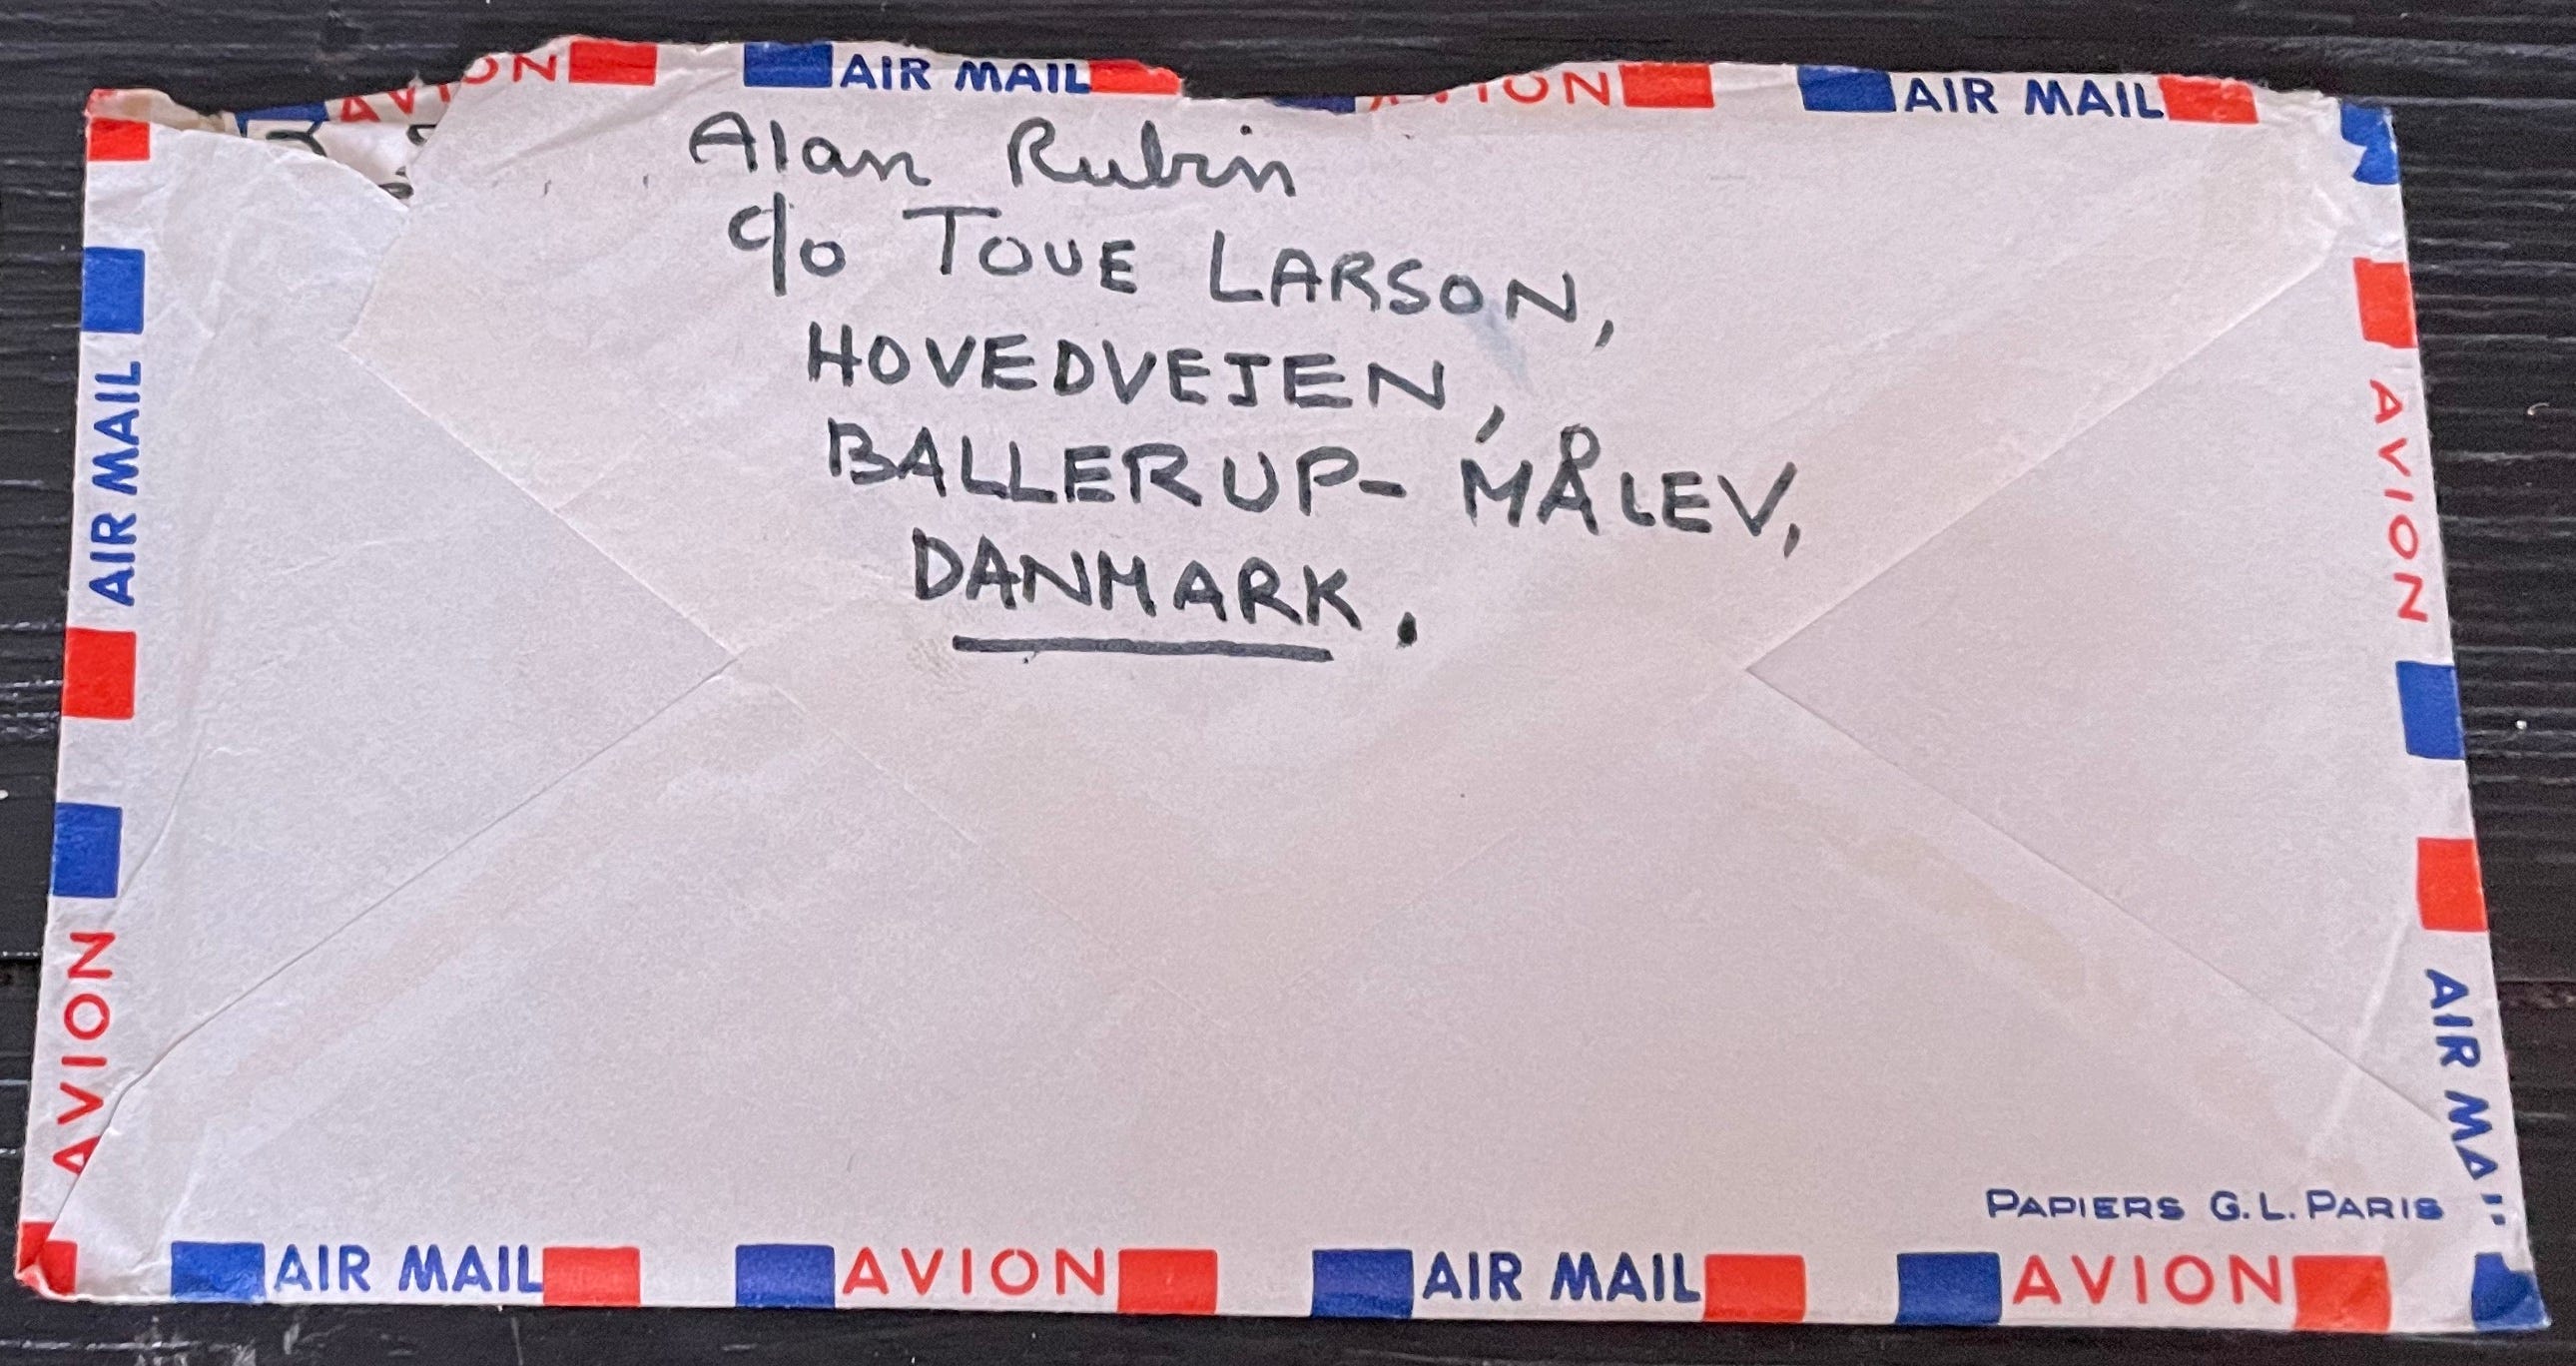 AVION AIR MAIL ION AIR MAIL
Alan Rubin
c/o TOVE LARSON,
HOVEDVEJEN,
BALLERUP- MÅLEV,
DANMARK.
AIR MAIL
AVION
AVION
AIR MAIL
PAPIERS G.L. PARIS
AIR MAIL AVION AIR MAIL AVION